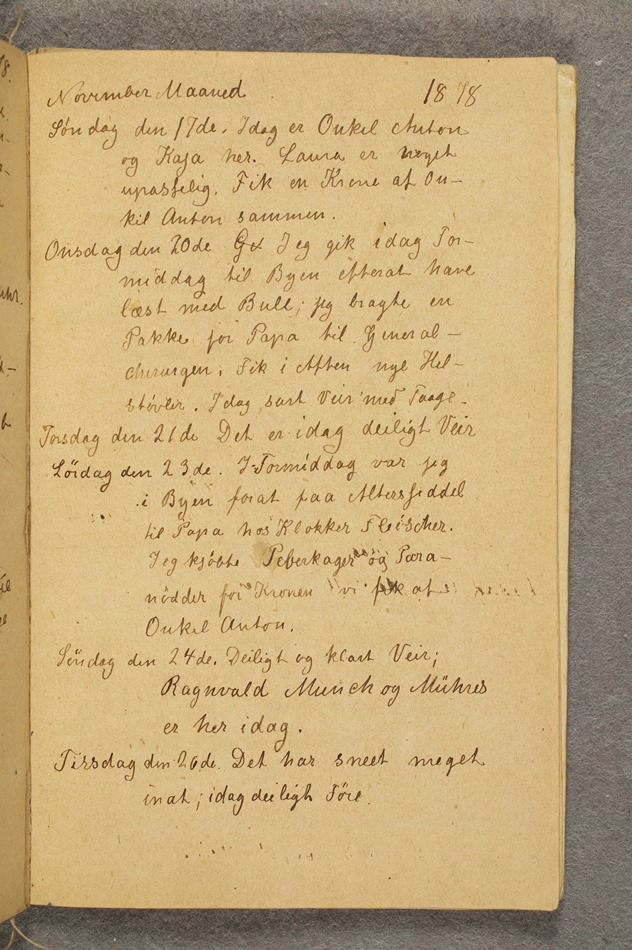 November Maaned 1878
Söndag den 17de. Idag er Onkel Anton
og Kaja her. Laura er noget
upasselig. Fik en Krone af On-
kil Anton sammen.
Onsdag den 20de Jeg gik idag For-
middag til Byen efterat have
læst med Bull; jeg bragte en
Pakke for Papa til General-
chirurgen. Fik i Aften nye Hel-
støvler. Idag surt Veir med Taage.
Torsdag den 21de Det er idag deiligt Veir
Lördag den 23de. I Formiddag var jeg
i Byen forat faa Altersseddel
til Papa hos Klokker Fleischer.
Jeg kjöbte Peberkager og Para-
nödder for Kronen vi fik af
Onkel Anton.
Söndag den 24de. Deiligt og klart Veir;
Ragnvald Munch og Mühres
er her idag.
Tirsdag den 26de. Det har sneet meget
inat; idag deiligh Före.